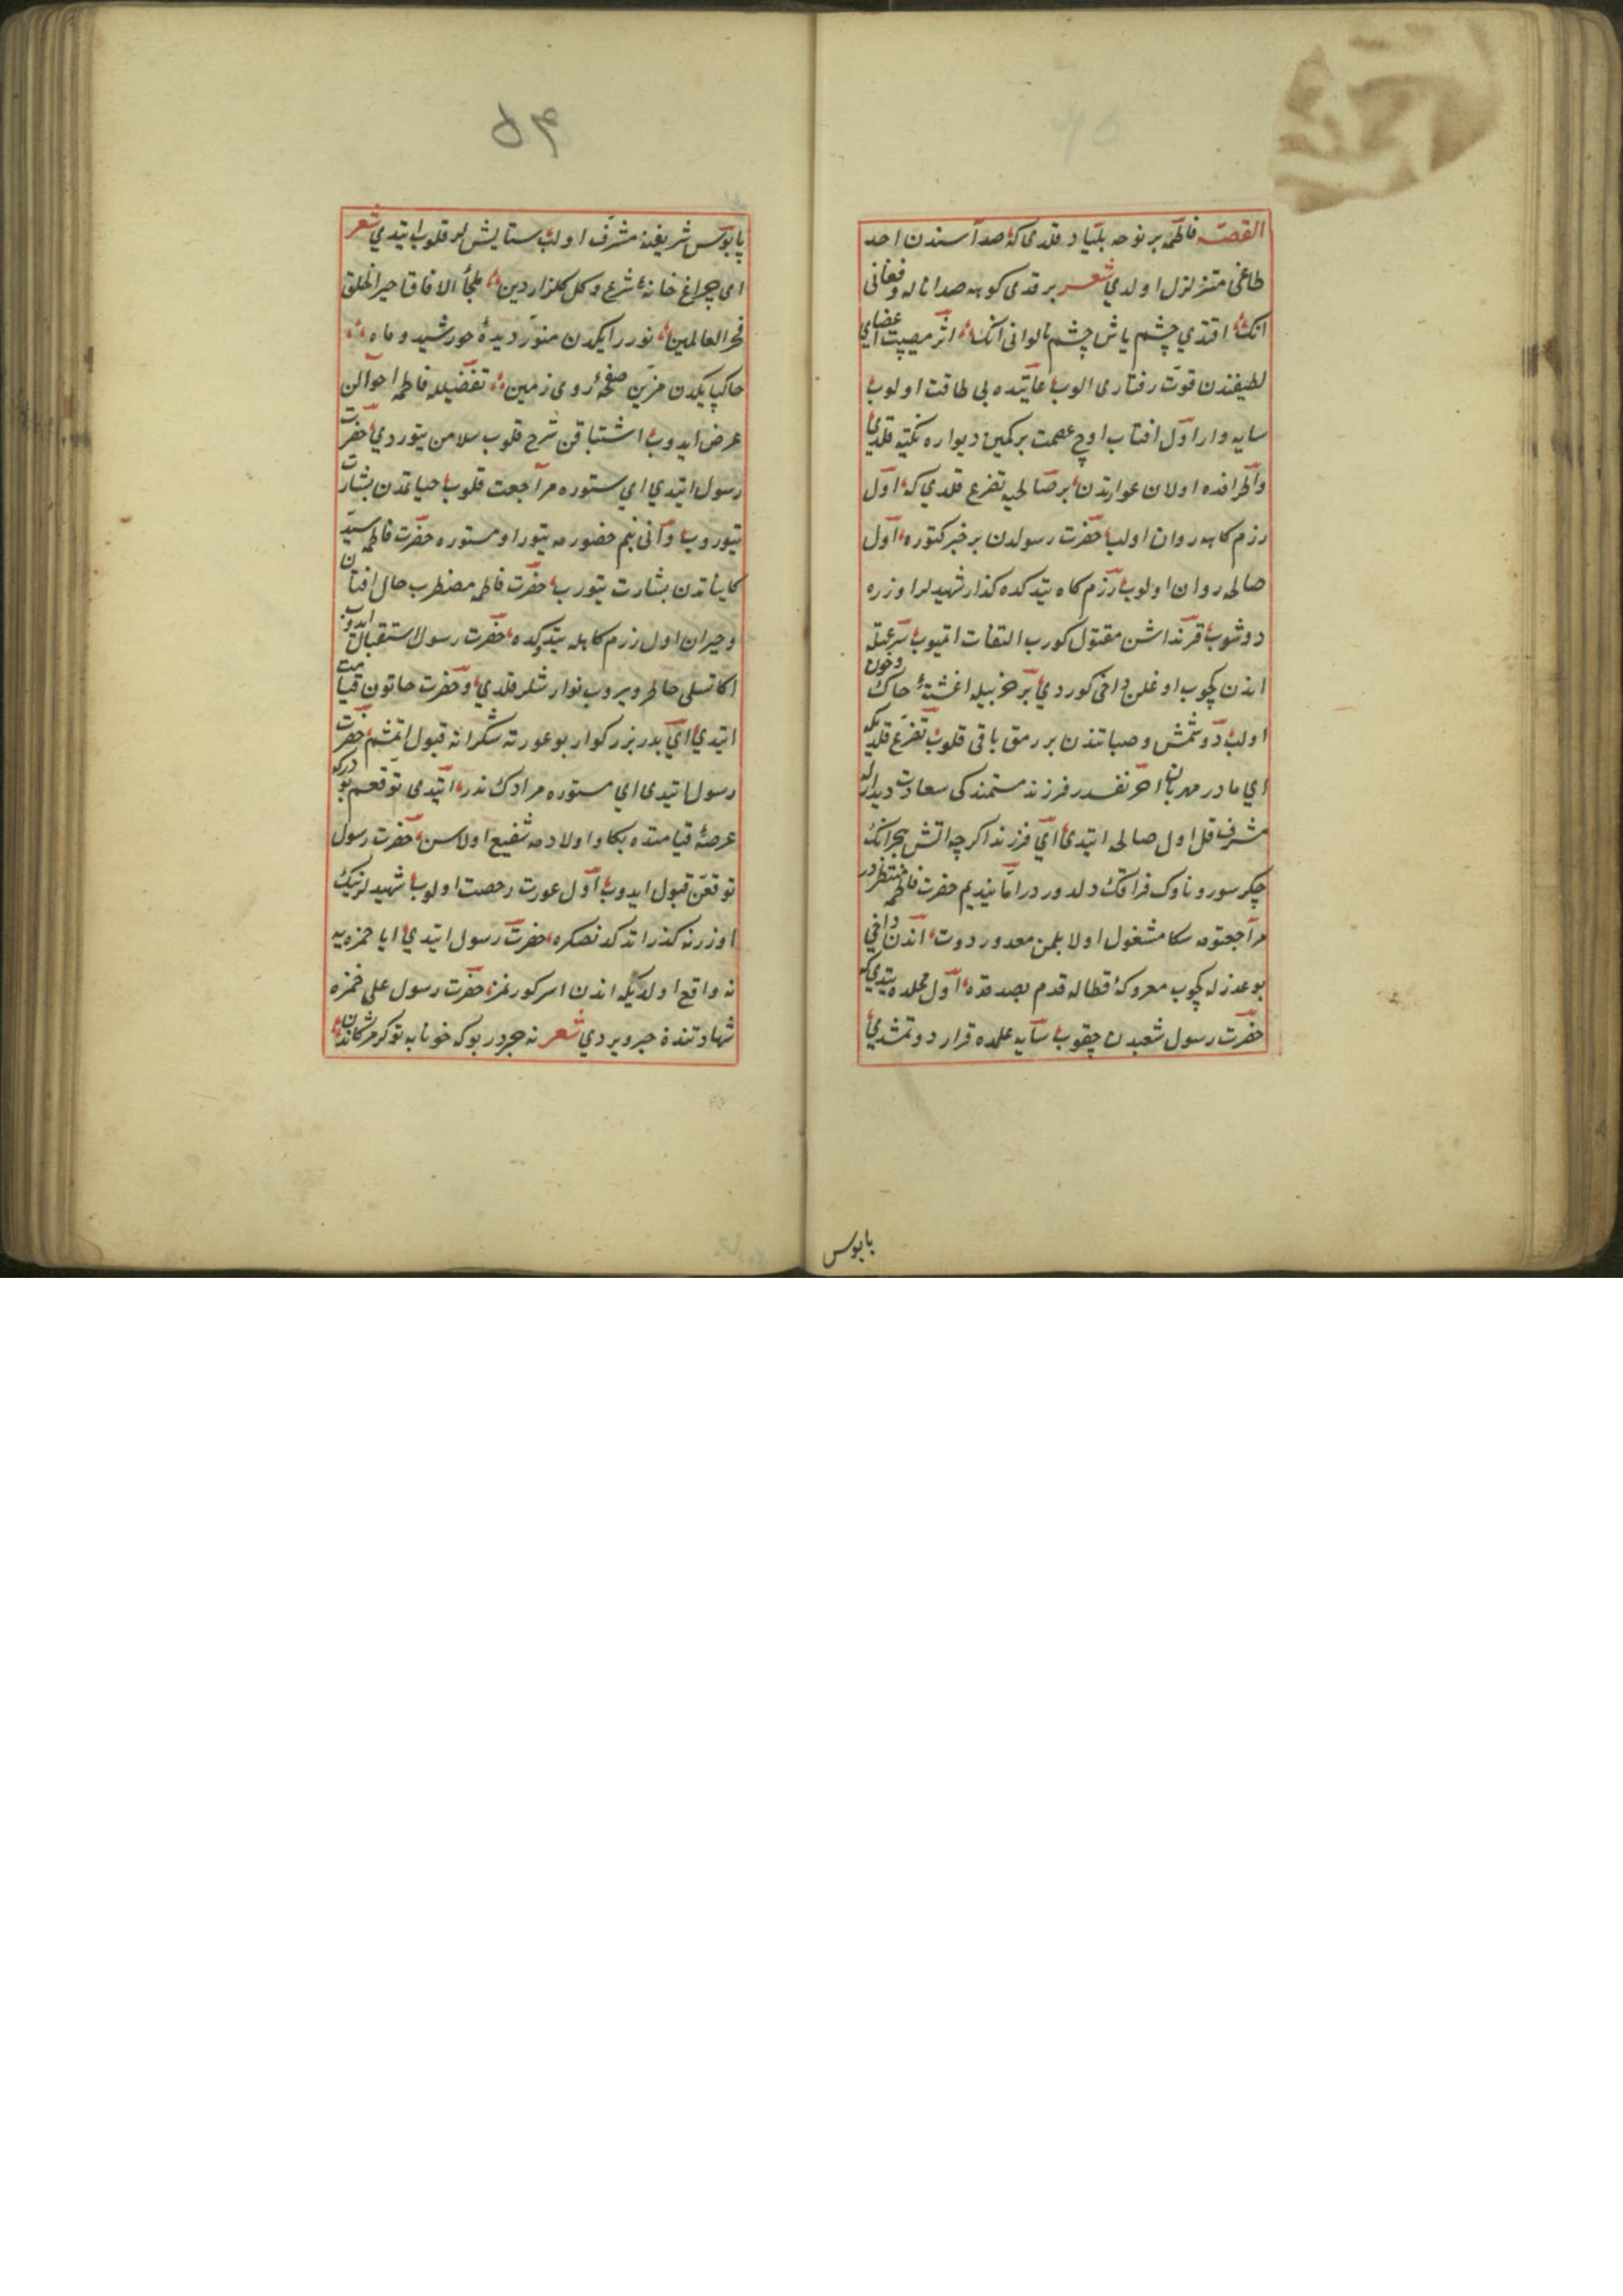 القصه فاطمه بر نوحه بنیاد قلدی که صداسندن احد
طاغی متزلزل اولدی شعر بر قدی کوهه صدا ناله و فغانی
انك اقتدی چشم یاش چشم انك اثر مصیبت اعضای
لطیفندن قوت رفتاری الوب غایتده بی طاقت اولوب
سایه وار اول افتاب اوج عصمت بر کمین دیواره تکیه قلدی
واطرافده اولان عوارتدن بر صالحیه تضرع قلدی که اول
رزم کاهه روان اولب حضرت رسولدن بر خبر کتوره اول
صالحه روان اولوب رزم کاه یتدکده کذار شهیدلر اوزره
دوشوب قرنداشن مقتول کورب التفات اتمیوب سرعتله
اندن کچوب اوغلن داخی کوردی بر خربیله اغشتهٔ خاك وخون
اولب دوشمش وصباتندن بر رمق باقی قلوب تضرع قلدیکه
ای مادر مهربان اخر نفسدر فرزند مستمندکی سعادت دیدارله
مشرف قل اول صالحه ایتدی ای فرزند اکرچه اتش هجرانك
جکر سوز و ناوك فراقك دلدوزدر اما نیدیم حضرت فاطمه منتظردر
مراجعتومه سکا مشغول اولا بلمن معذور دوت اندن داخی
بو عذرله کچوب معرکهٔ قتاله قدم بصدقده اول محلده یتدی که
حضرت رسول شعبدن چقوب سایه علمده قرار دوتمشدی
پابوس
پابوس شریفنه مشرف اولب ستایش لر قلوب ایتدی شعر
ای چراغ خانهٔ شرع وکل کلزار دین ملجأ الافاق خیر الخلق
فخر العالمین نوررایکدن منور دیدهٔ خورشید و ماه
خاکپایکدن مزین صفحهٔ روی زمین تفضیله فاطمه احوالن
عرض ایدوب اشتیاقن شرح قلوب سلامن یتوردی حضرت
رسول ایتدی ای ستوره مراجعت قلوب حیاتمدن بشارت
یتوروب وانی بنم حضورمه یتور اومستوره حضرت فاطمه سید
کایناتدن بشارت یتورب حضرت فاطمه مضطرب حال افتان
وخیزان اول رزم کاهه یتدکده حضرت رسول استقبال ایدوب
اکا تسلی خاطر ویروب نوازشلر قلدی و حضرت خاتون قیامت
ایتدی ای پدر بزرکوار بو عورته شکرانه قبول اتمشم حضرت
رسول ایتدی ای مستوره مرادك ندر ایتدی توقعم بودرکه
عرصهٔ قیامتده بکا و اولادمه شفیع اولاسن حضرت رسول
توقعن قبول ایدوب اول عورت رخصت اولوب شهیدلرنیك
اوزرنه کذر اتدکدنصکره حضرت رسول ایتدی ایا حمزه یه
نه واقع اولدیکه اندن اسر کورنمز حضرت رسول علی حمزه
شهادتنده خبر ویردی شعر نه خبردر بوکه خونابه توکر مژکاندن
۵۴